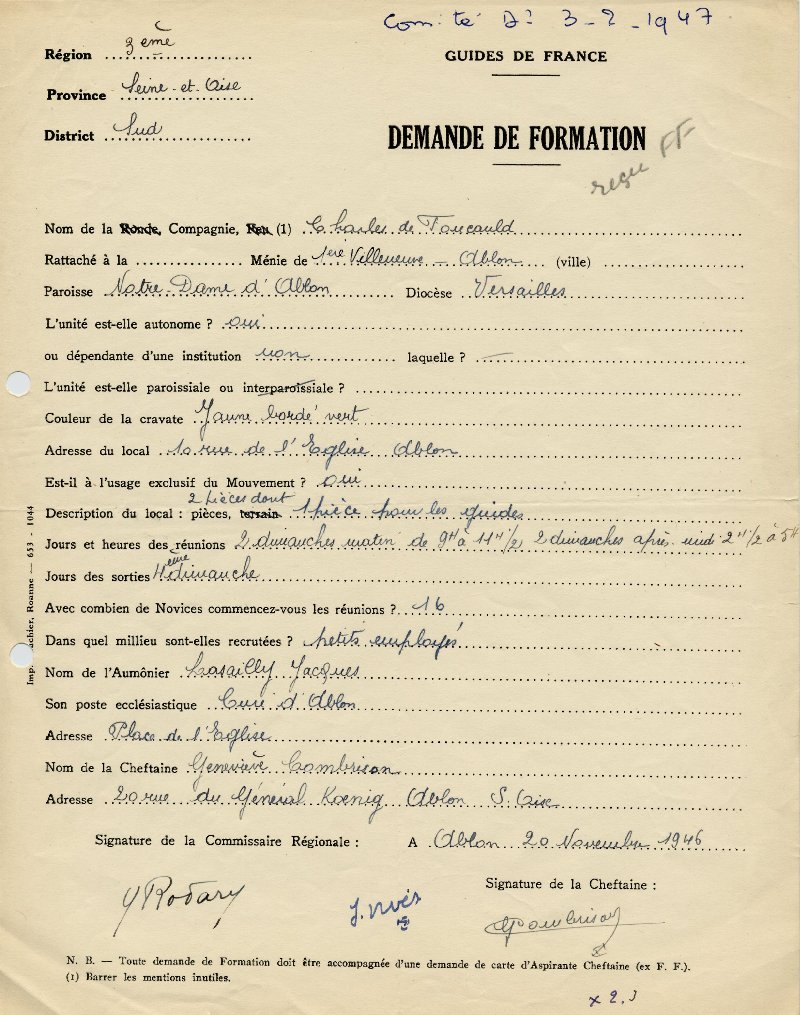 Comité Dr 3-2-1947
Région 3ème
GUIDES DE FRANCE
Province Seine-et-Oise
District Sud
DEMANDE DE FORMATION
reçu FF
Nom de la Ronde, Compagnie, Feu (1) Charles de Foucauld
Rattaché à la ............... Ménie de 1ère Villeneuve - Ablon (ville) ...............
Paroisse Notre-Dame d'Ablon Diocèse Versailles
L'unité est-elle autonome ? oui
ou dépendante d'une institution non laquelle ? —
L'unité est-elle paroissiale ou interparoissiale ?
Couleur de la cravate Jaune bordé vert
Adresse du local 10 rue de l'Eglise Ablon
Est-il à l'usage exclusif du Mouvement ? oui
2 pièces dont
Description du local : pièces, terrain. 1 pièce pour les guides
Jours et heures des réunions 2 dimanches matin de 9H à 11H1/2, 2 dimanches après midi 2H1/2 à 5H
Jours des sorties 4ème dimanche
Avec combien de Novices commencez-vous les réunions ? 16
Dans quel millieu sont-elles recrutées ? petits employés
Nom de l'Aumônier Lasailly Jacques
Son poste ecclésiastique Curé d'Ablon
Adresse Place de l'Eglise
Nom de la Cheftaine Geneviève Cambrison
Adresse 20 rue du Général Kœnig Ablon S. Oise
Signature de la Commissaire Régionale : A Ablon 20 Novembre 1946
Signature de la Cheftaine :
Y Rodary
N. B. — Toute demande de Formation doit être accompagnée d'une demande de carte d'Aspirante Cheftaine (ex F. F.).
(1) Barrer les mentions inutiles.
Roanne — 653 - 1044